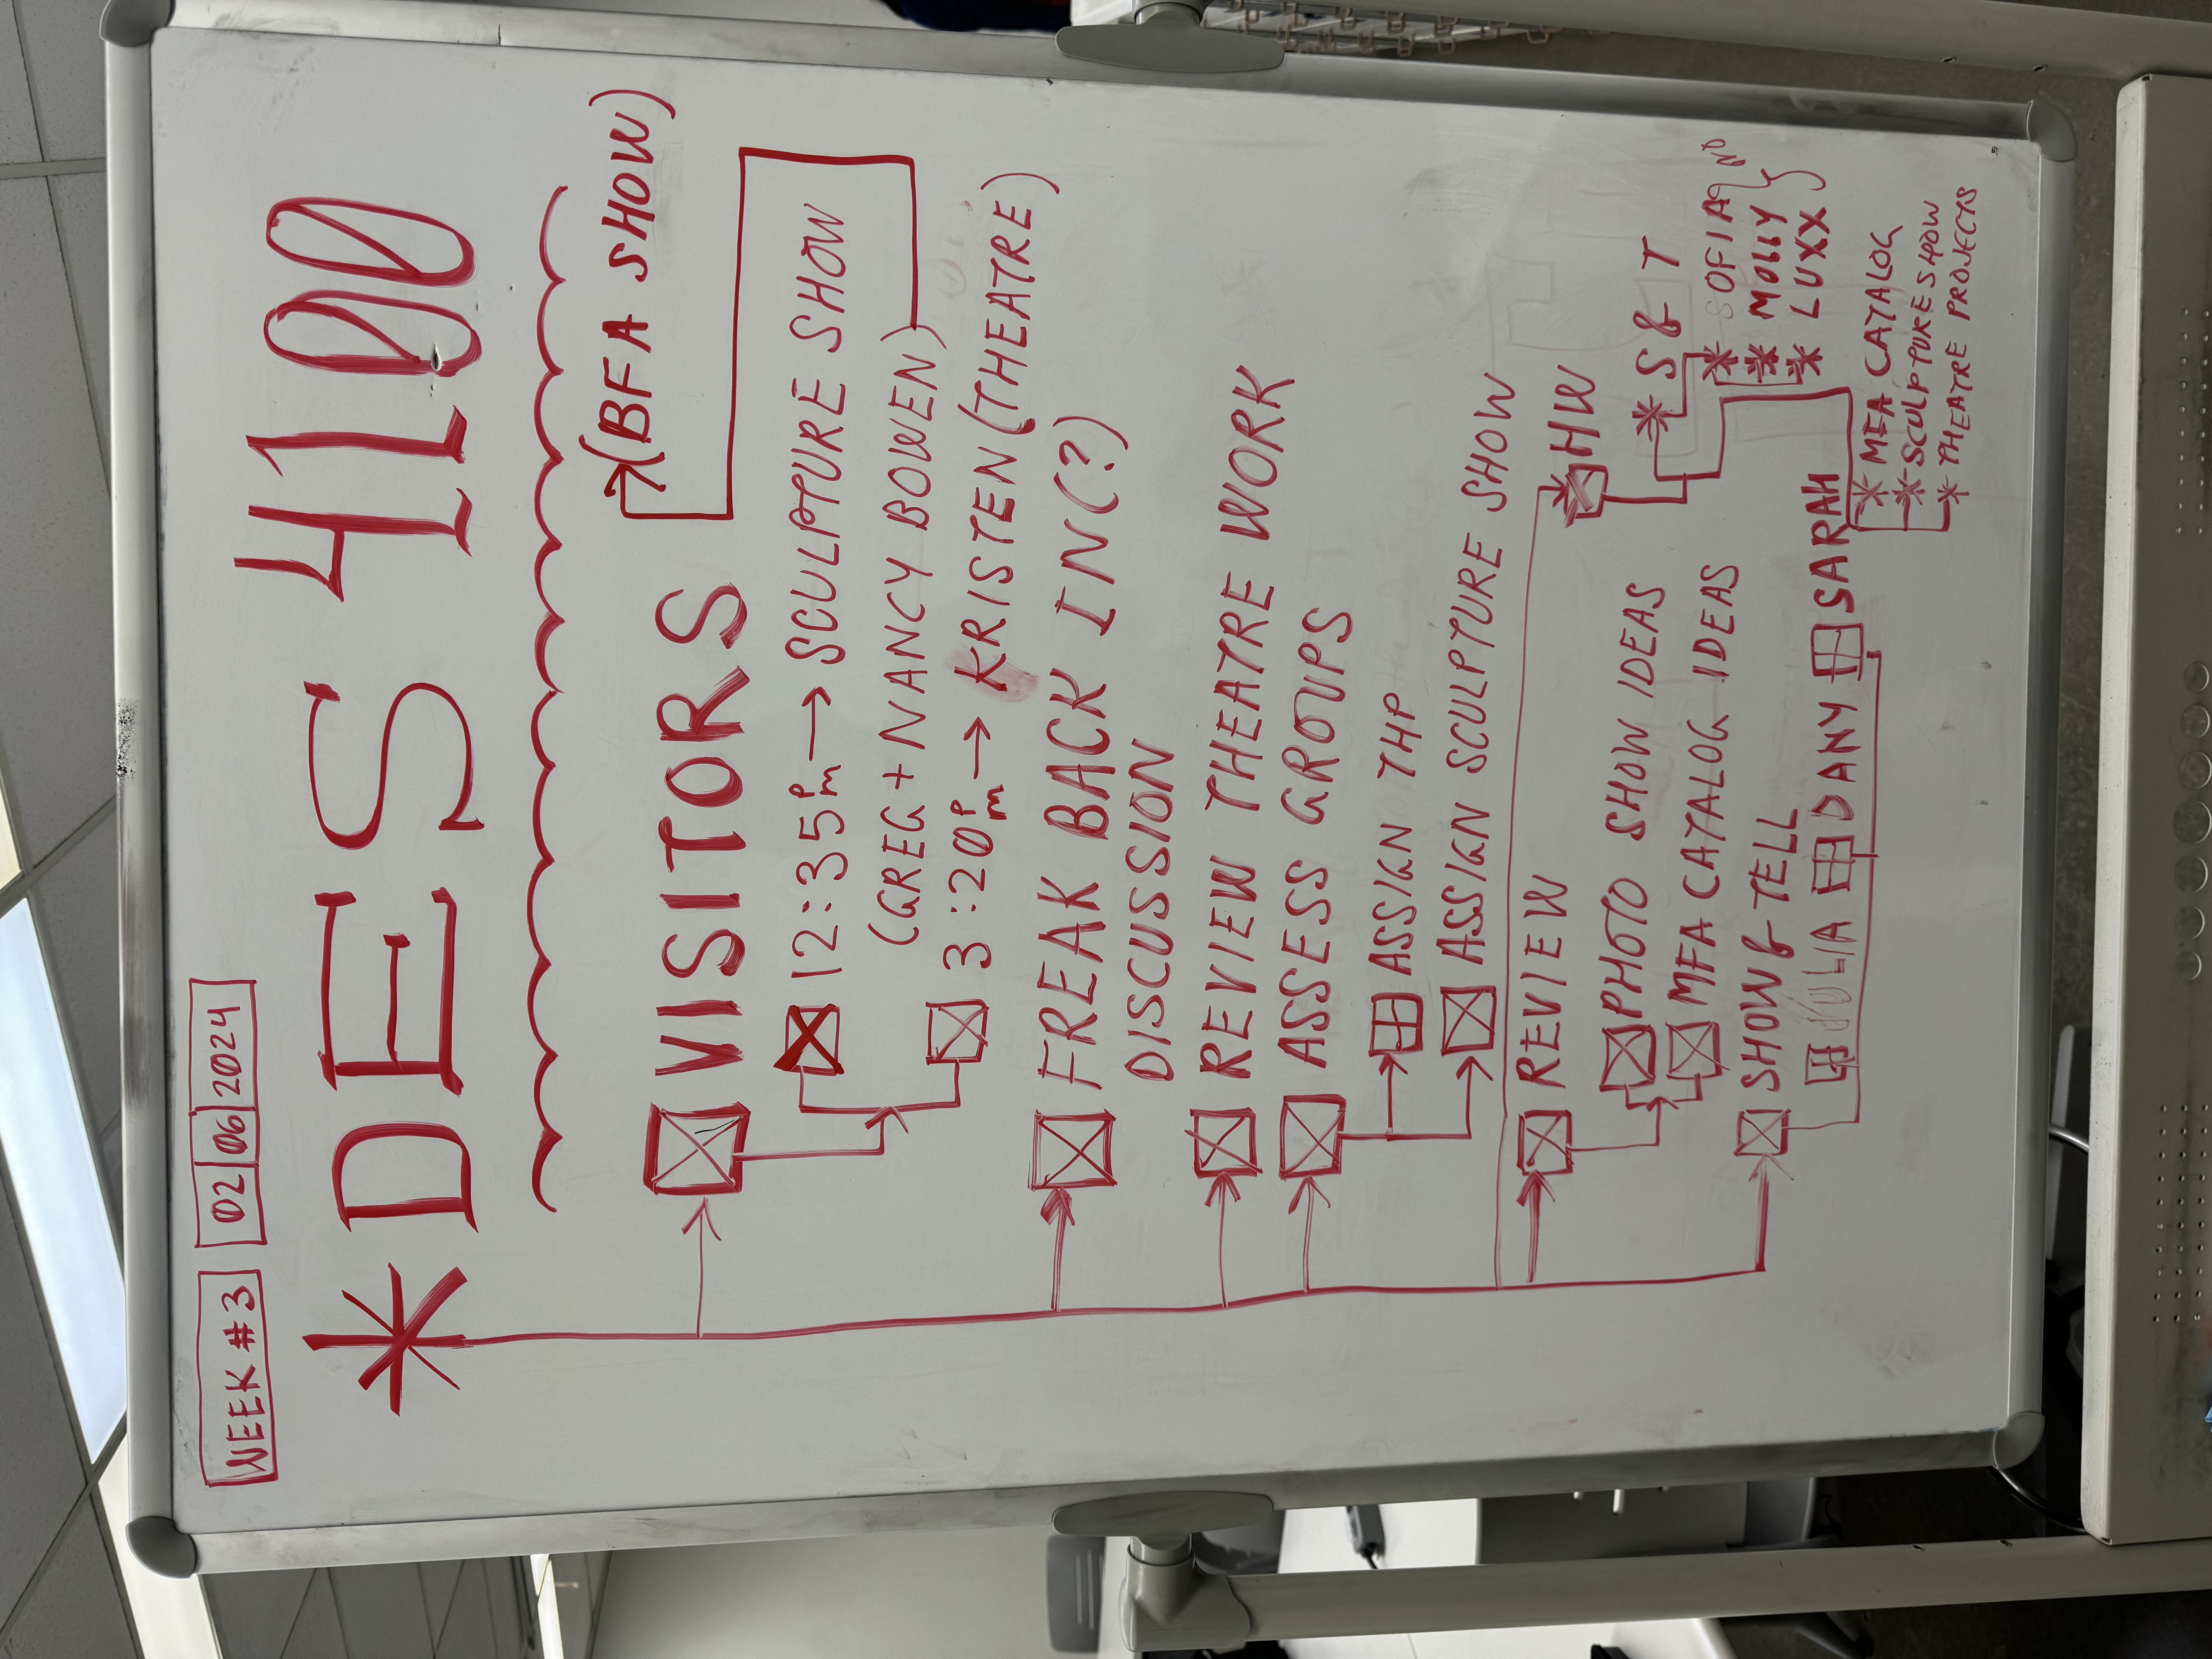 WEEK #3 02 06 2024
*DES 4100
(BFA SHOW)
VISITORS
12:35pm → SCULPTURE SHOW
(GREG + NANCY BOWEN)
3:20pm → KRISTEN (THEATRE)
FREAK BACK IN(?)
DISCUSSION
REVIEW THEATRE WORK
ASSESS GROUPS
ASSIGN THP
ASSIGN SCULPTURE SHOW
REVIEW
PHOTO SHOW IDEAS
MFA CATALOG IDEAS
SHOW & TELL
JULIA DANY SARAH
HW
* S & T
* SOFIA
* MOLLY
* LUXX
* MFA CATALOG
* SCULPTURE SHOW
* THEATRE PROJECTS